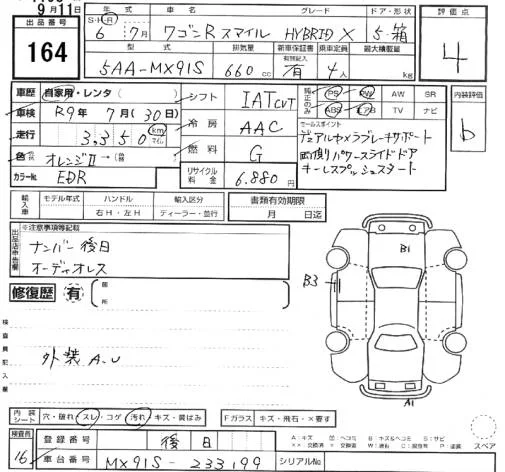 9月11日
出品番号
164
年式 車名 グレード ドア・形状
S・H・R 6 7月 ワゴンR スマイル HYBRID X 5・箱
型式 排気量 新車保証書 乗車定員 最大積載量
有効記入
5AA-MX91S 660cc 有 4人 kg
評価点
4
車歴 自家用・レンタ( )
車検 R9年 7月(30日)
走行 3,350 km マイル
色 オレンジⅡ→( )
カラーNo. EDR
シフト IAT CVT
冷房 AAC
燃料 G
リサイクル料金 6.880円
純正のみ PS PW AW SR
ABS エアB TV ナビ
内装評価
b
セールスポイント
デュアルカメラブレーキサポート
両側パワースライドドア
キーレスプッシュスタート
輸入車 モデル年式 ハンドル 輸入区分
右H・左H ディーラー・並行
書類有効期限
月 日迄
出品店申告欄
※注意事項等記載
ナンバー後日
オーディオレス
修復歴 有 箇所
検査員記入欄
外装 A.U
B1
B3
A1
内装シート 穴・破れ・スレ・コゲ・汚れ・キズ・黄ばみ Fガラス キズ・飛石・×要す
A:キズ U:ヘコミ B:キズ&ヘコミ S:サビ
スペア
検査員
16
登録番号 後日
車台番号 MX91S-233199 シリアルNo.